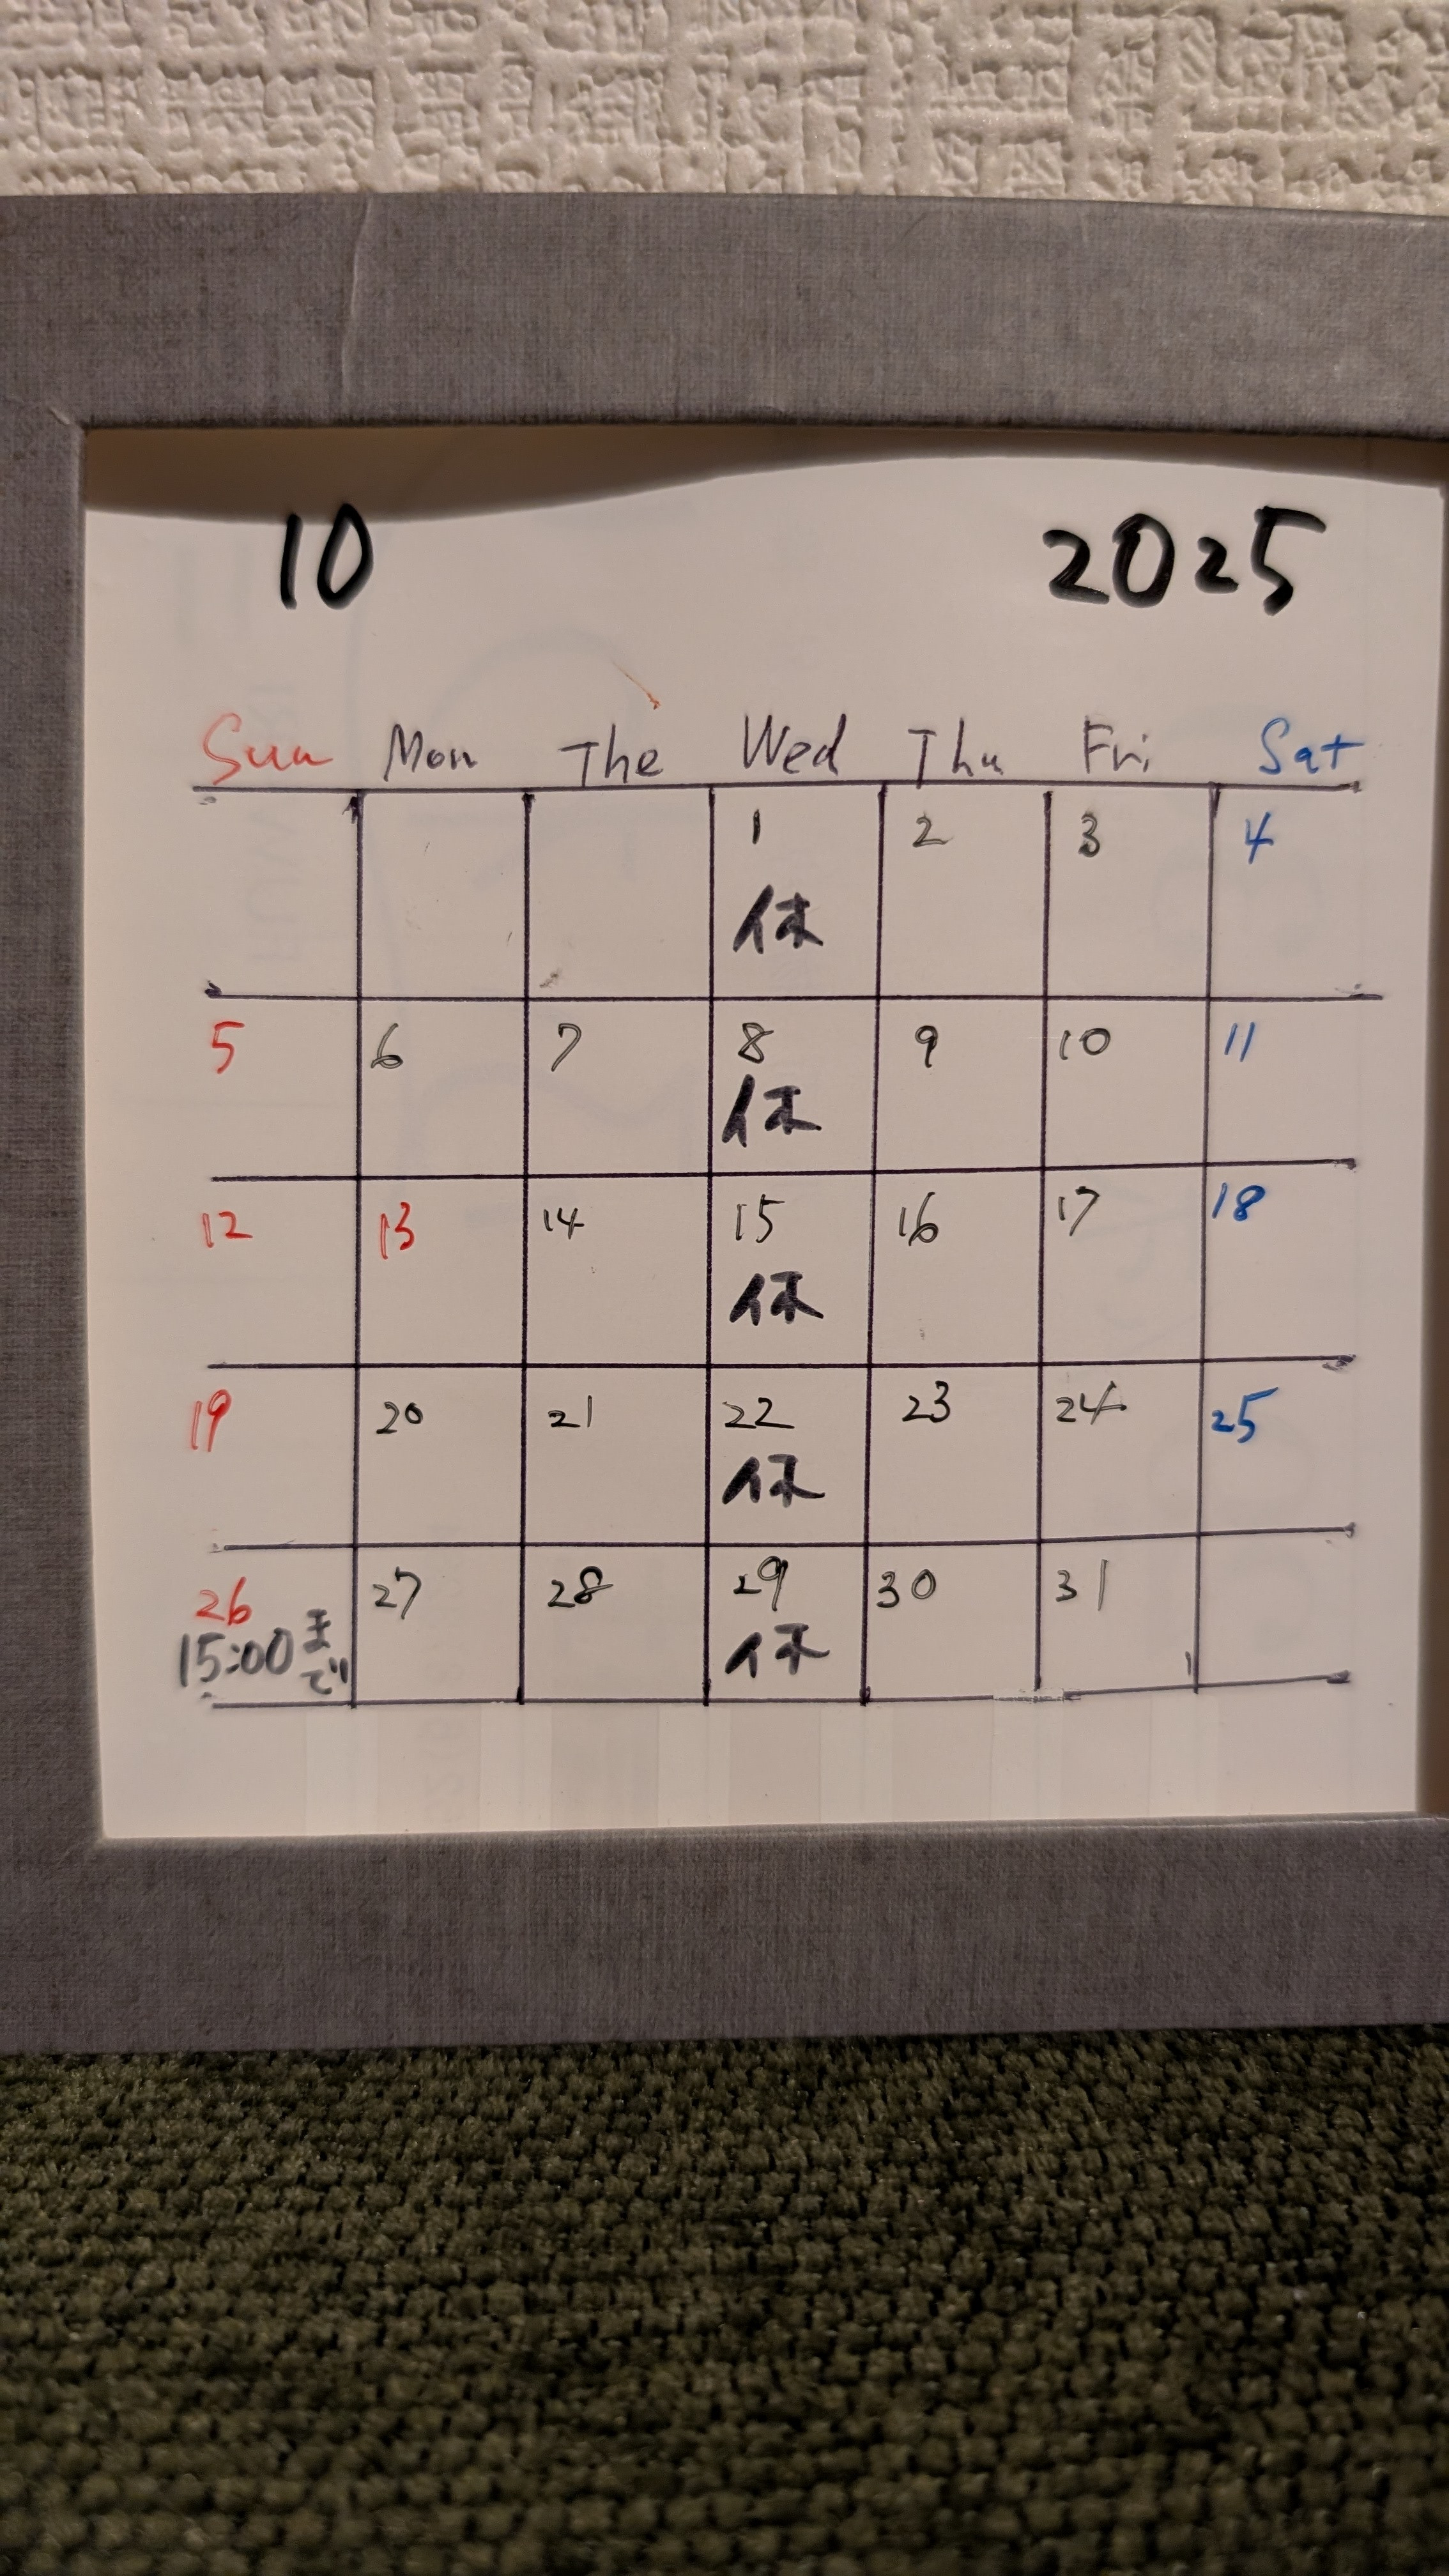 10 2025
Sun Mon The Wed Thu Fri Sat
1 2 3 4
休
5 6 7 8 9 10 11
休
12 13 14 15 16 17 18
休
19 20 21 22 23 24 25
休
26 27 28 29 30 31
15:00まで 休